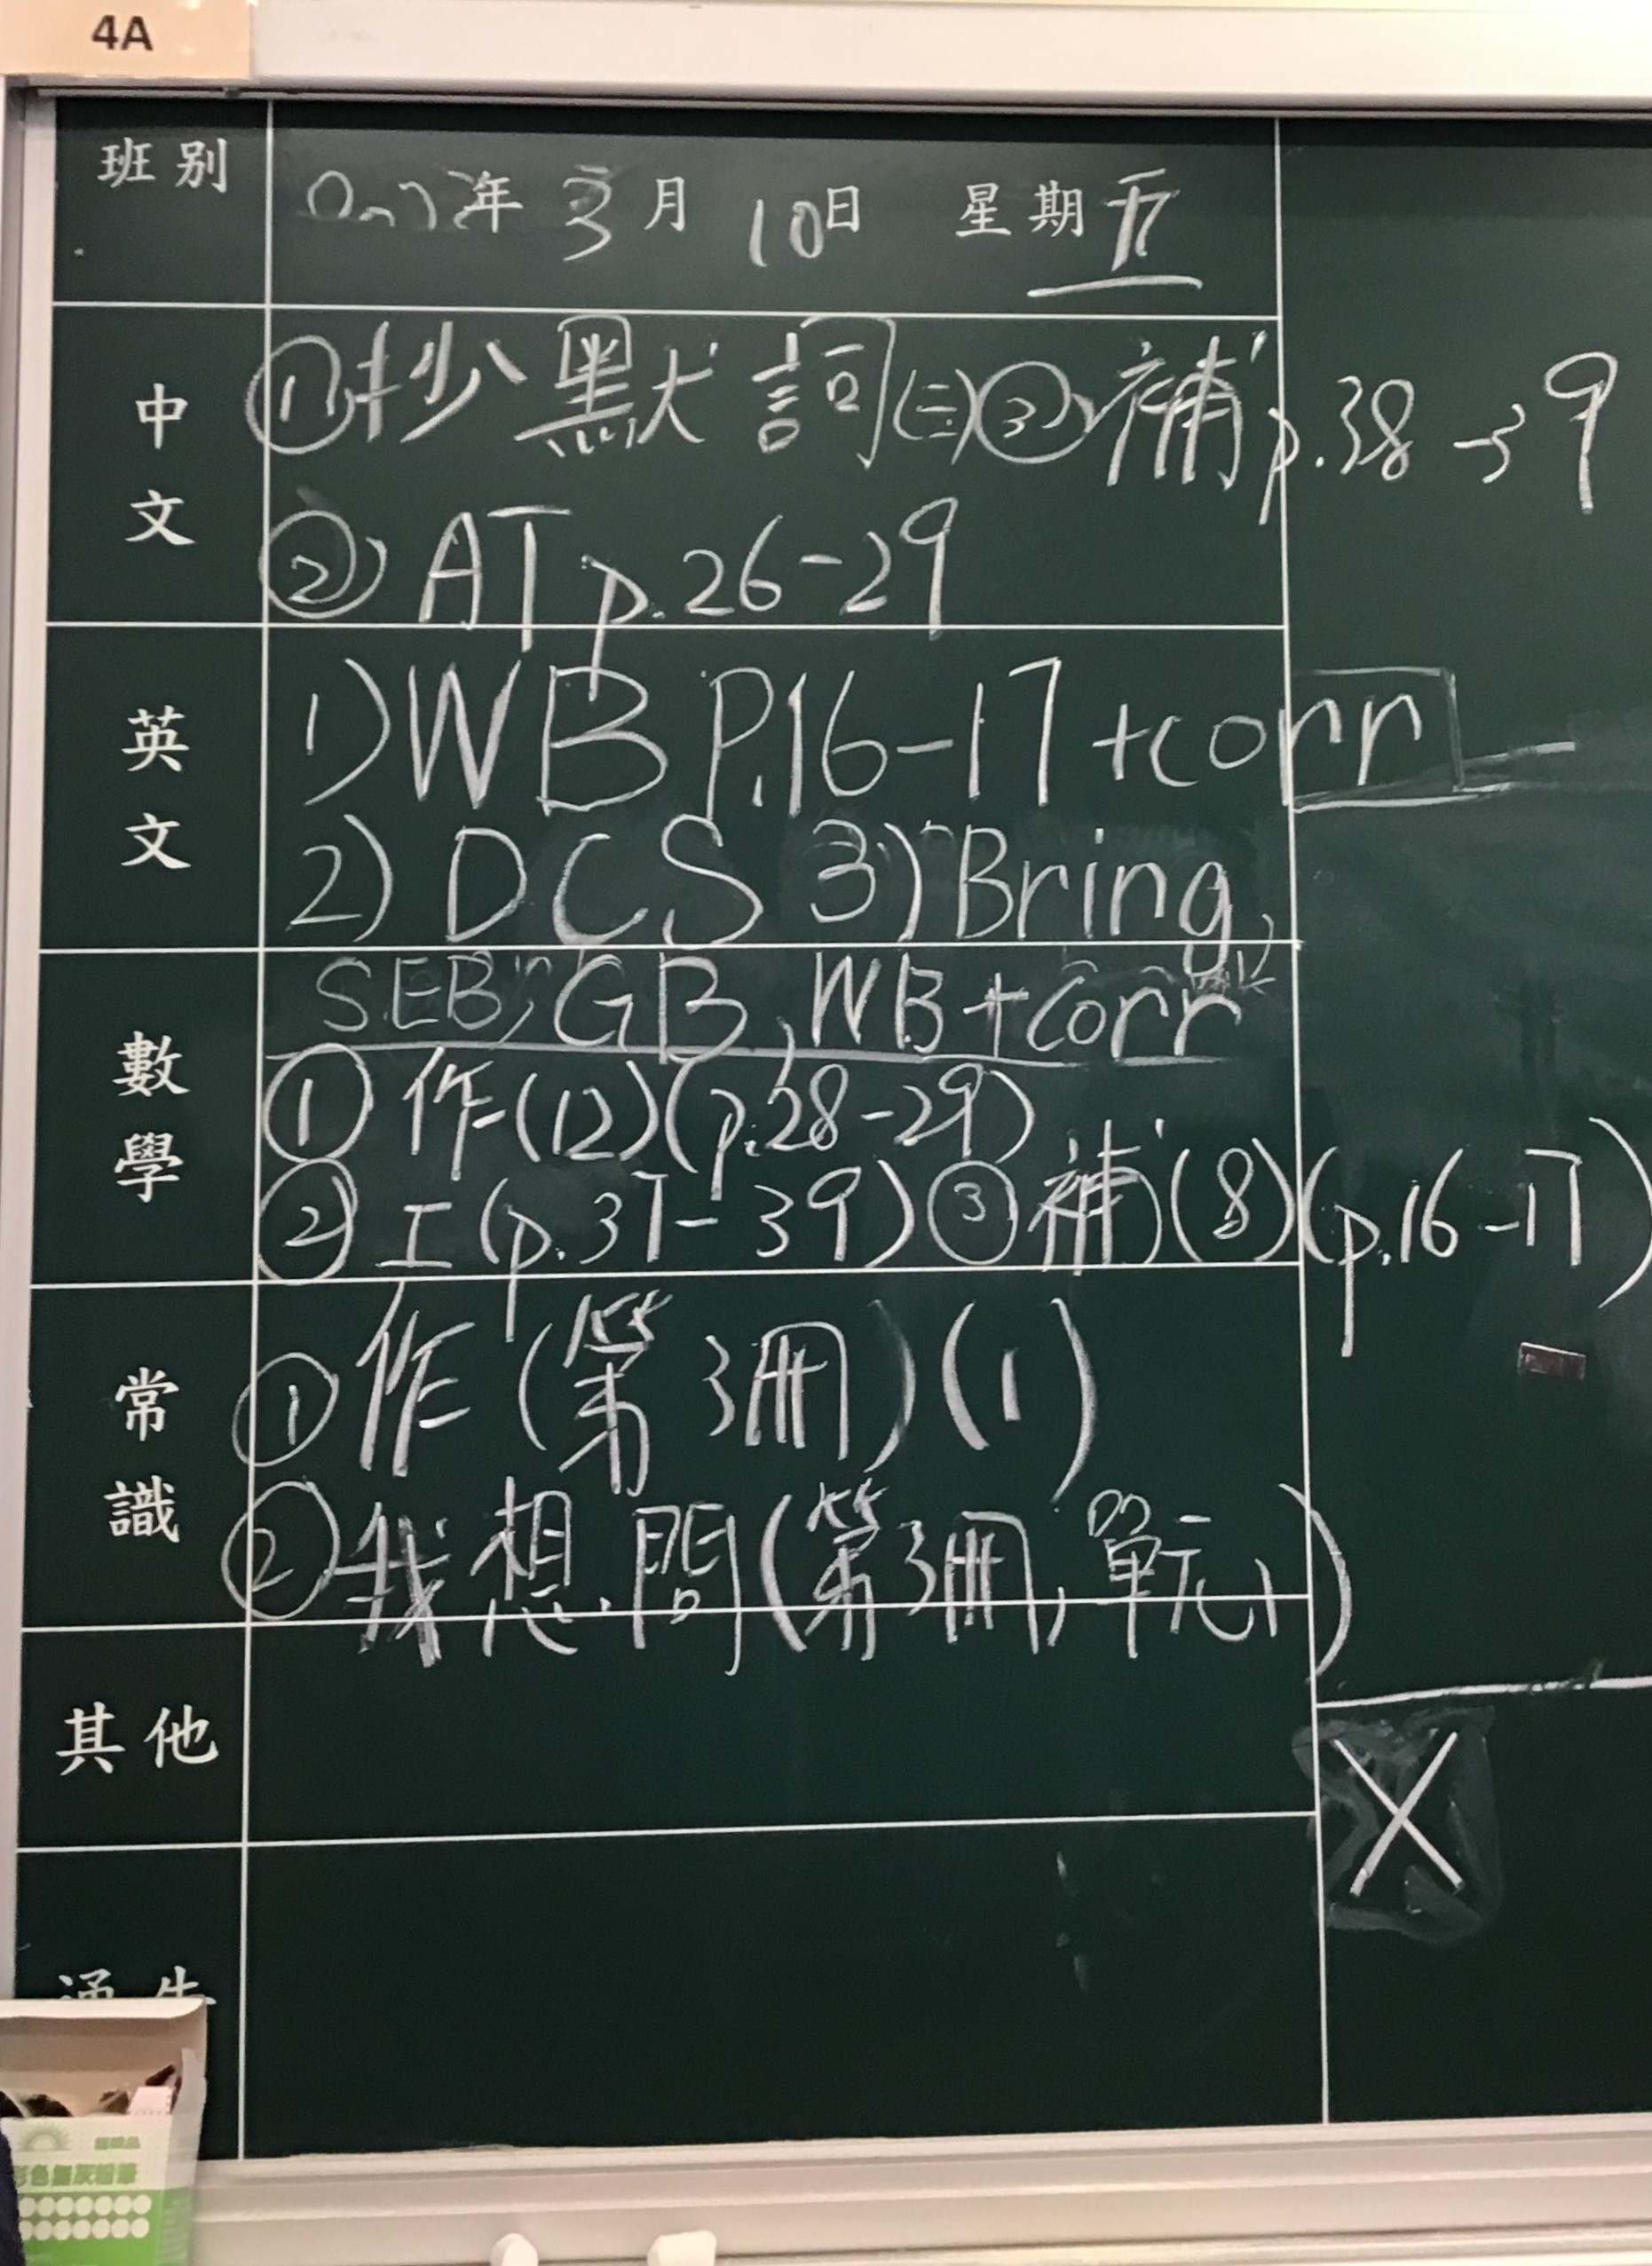 4A
班別
年 3 月 10 日 星期五
中文
①抄默詞(三)③補p.38-39
②AT p.26-29
英文
1)WB P.16-17 +corr
2) DCS 3) Bring
SEB, GB, WB+corr
數學
① 作(12)(p.28-29)
② 工(p.37-39)③補(8)(p.16-17)
常識
①作(第3冊)(1)
②我想問(第3冊,單元1)
其他
X
通告
色無灰粉筆